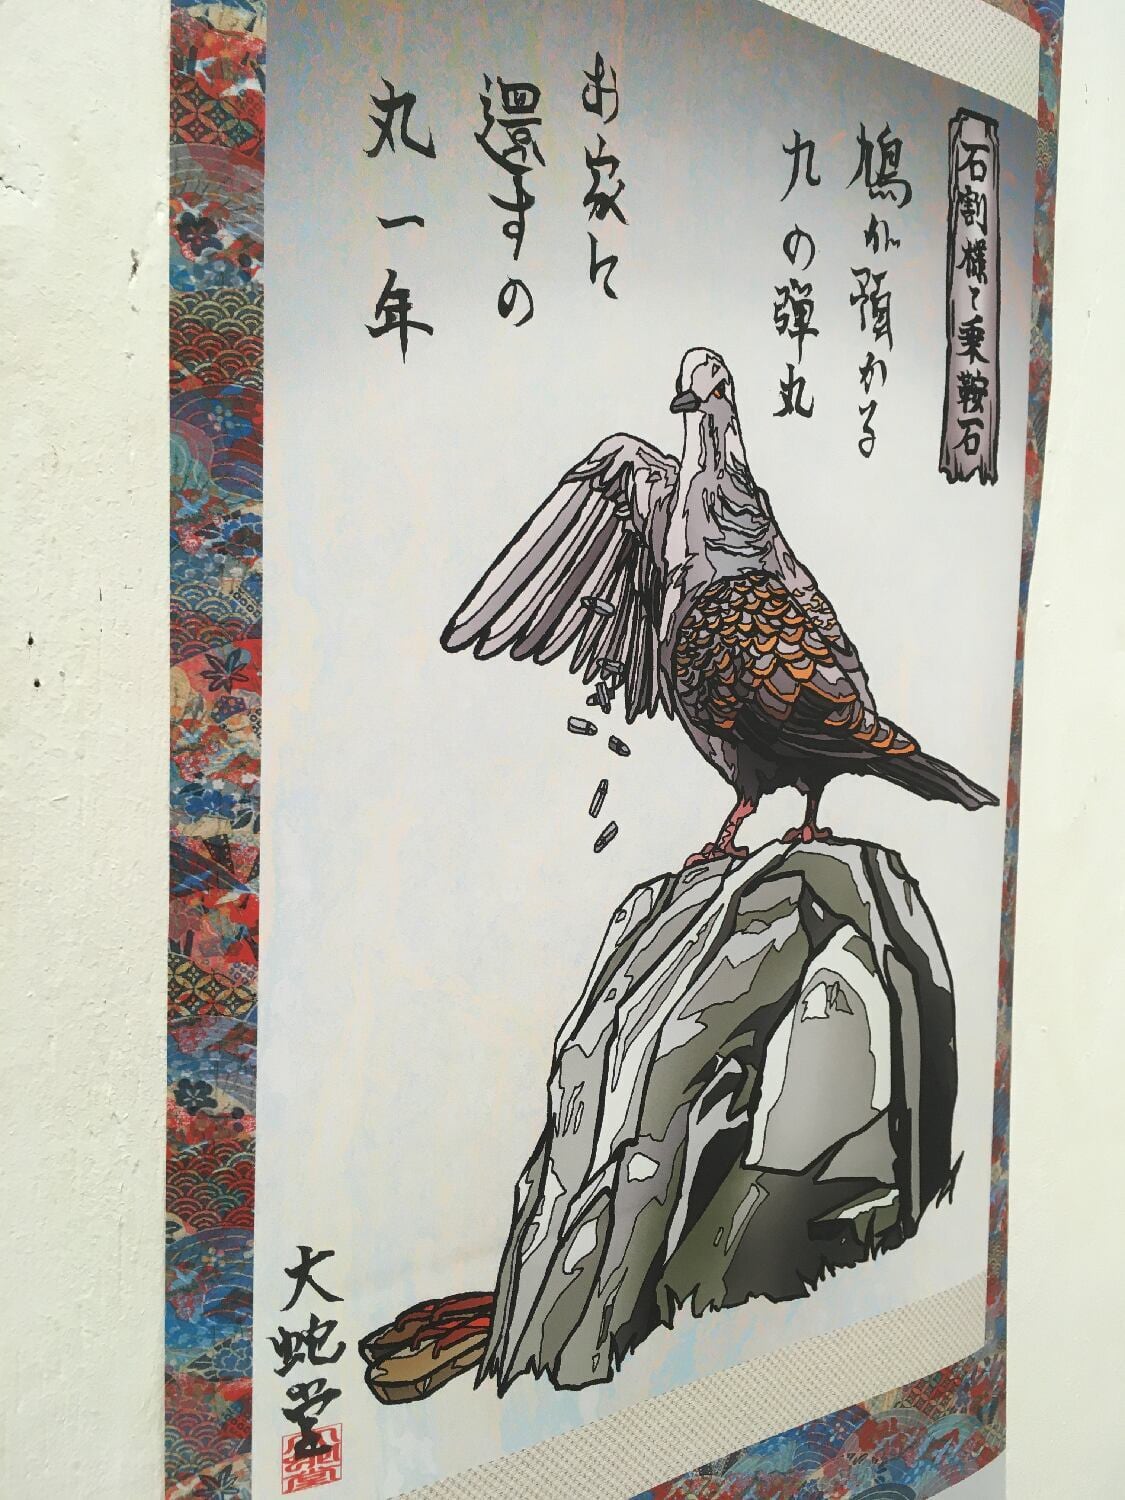 石割櫻と乗鞍石
鳩が預かる
九の弾丸
お家に
還すの
丸一年
大蛇堂